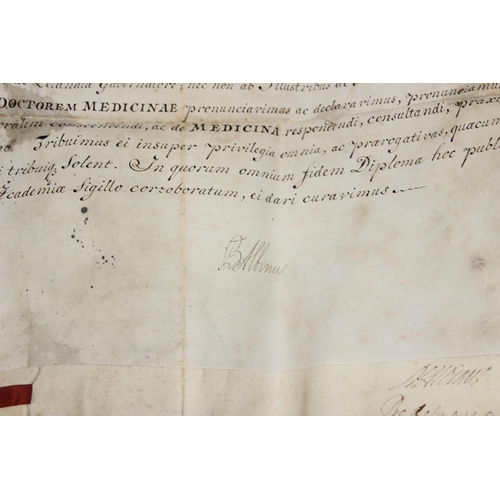 Gubernatore, nec non ab Illustribus
DOCTOREM MEDICINAE pronunciavimus ac declaravimus, pronunciamu
conscendendi, ac de MEDICINA respondendi, consultandi, prax
Tribuimus ei insuper privilegia omnia, ac prærogativas, quacum
tribui solent. In quorum omnium fidem Diploma hoc publ
Academiæ Sigillo corroboratum, ei dari curavimus
B Albinus